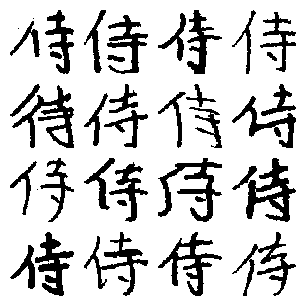 侍侍侍侍
待侍侍侍
侍侍侍侍
侍侍侍侍